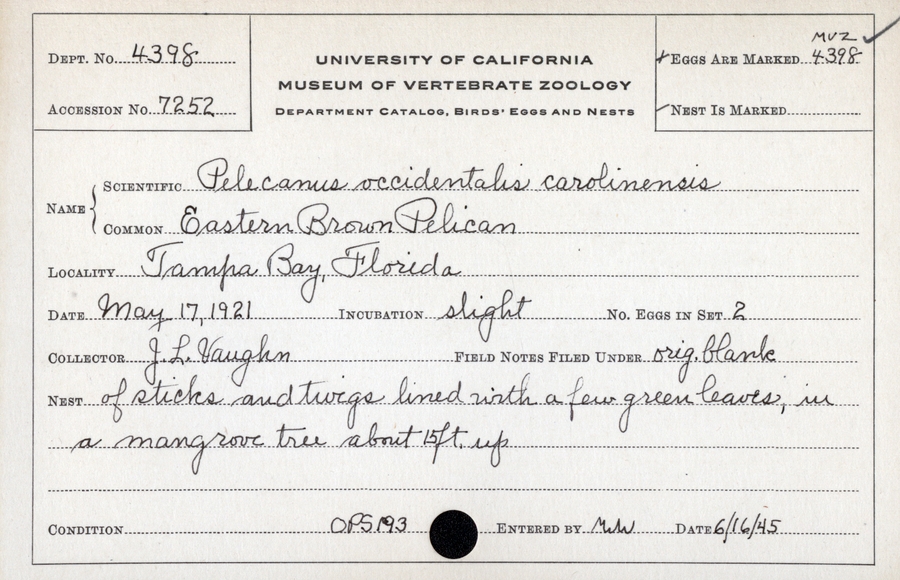 MVZ
Dept. No. 4398
UNIVERSITY OF CALIFORNIA
Eggs Are Marked 4398
MUSEUM OF VERTEBRATE ZOOLOGY
Accession No. 7252
Department Catalog, Birds' Eggs and Nests
Nest Is Marked
Name
Scientific Pelecanus occidentalis carolinensis
Common Eastern Brown Pelican
Locality Tampa Bay, Florida
Date May 17, 1921 Incubation slight No. Eggs in Set 2
Collector J. L. Vaughn Field Notes Filed Under orig. blank
Nest of sticks and twigs lined with a few green leaves, in
a mangrove tree about 15 ft. up
Condition OPS193 Entered by Date 6/16/45